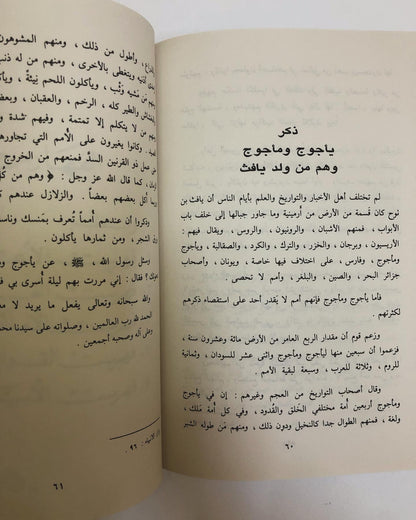 ذكر
يأجوج ومأجوج
وهم من ولد يافث
لم تختلف أهل الأخبار والتواريخ والعلم بأيام الناس أن يافث بن
نوح كان قسمة من الأرض من أرمنية وما جاور جبالها إلى خلف باب
الأبواب ، فمنهم الأشبان ، والرونيون ، والروس ، ويقال فيهم :
الأريسيون ، وبرجان ، والخزر ، والترك ، والكرد ، والصقالبة ، ويأجوج
ومأجوج ، وفارس ، على اختلاف فيها خاصة ، ويونان ، وأصحاب
جزائر البحر ، والصين ، والبلغر ، وأمم لا تحصى .
فأما يأجوج ومأجوج فإنهم أمم لا يقدر أحد على استقصاء ذكرهم
لكثرتهم .
وزعم قوم أن مقدار الربع العامر من الأرض مائة وعشرون سنة ،
فزعموا أن سبعين منها ليأجوج ومأجوج واثني عشر للسودان ، وثمانية
للروم ، وثلاثة للعرب ، وسبعة لبقية الأمم .
وقال أصحاب التواريخ من العجم وغيرهم : إن في يأجوج
ومأجوج أربعين أمة مختلفي الخلق والقدود ، وفي كل أمة ملك ،
ولغة ، فمنهم الطوال جدا كالنخيل ودون ذلك ، ومنهم من طوله الشبر
٦٠
، وأطول من ذلك ، ومنهم المشوهون
أذنيه ويتغطى بالأخرى ، ومنهم من له ذنب
مشيه وثب ، ويأكلون اللحم نيئة ،
والطير كله ، الرخم ، والعقبان ، وبعض
من لا يتكلم إلا تمتمة ، وفيهم شدة و
وكانوا يغيرون على الأمم التي تجاورهم
عمل ذو القرنين السد فمنعهم من الخروج
، كما قال الله عز وجل : ﴿ وهم من كل
بعضهم بعضاً . والزلازل عندهم كـ
وذكروا أن عندهم أمماً تُعرف بمنسك وناسـ
الشجر ، ومن ثمارها يأكلون .
وسئل رسول الله ﷺ ، عن يأجوج و
؟ فقال : إني مررت بهم ليلة أسرى بي
والله سبحانه وتعالى يفعل ما يريد لا معـ
الحمد لله رب العالمين ، وصلواته على سيدنا محمد
وعلى آله وصحبه أجمعين .
٩٦ .
٦١